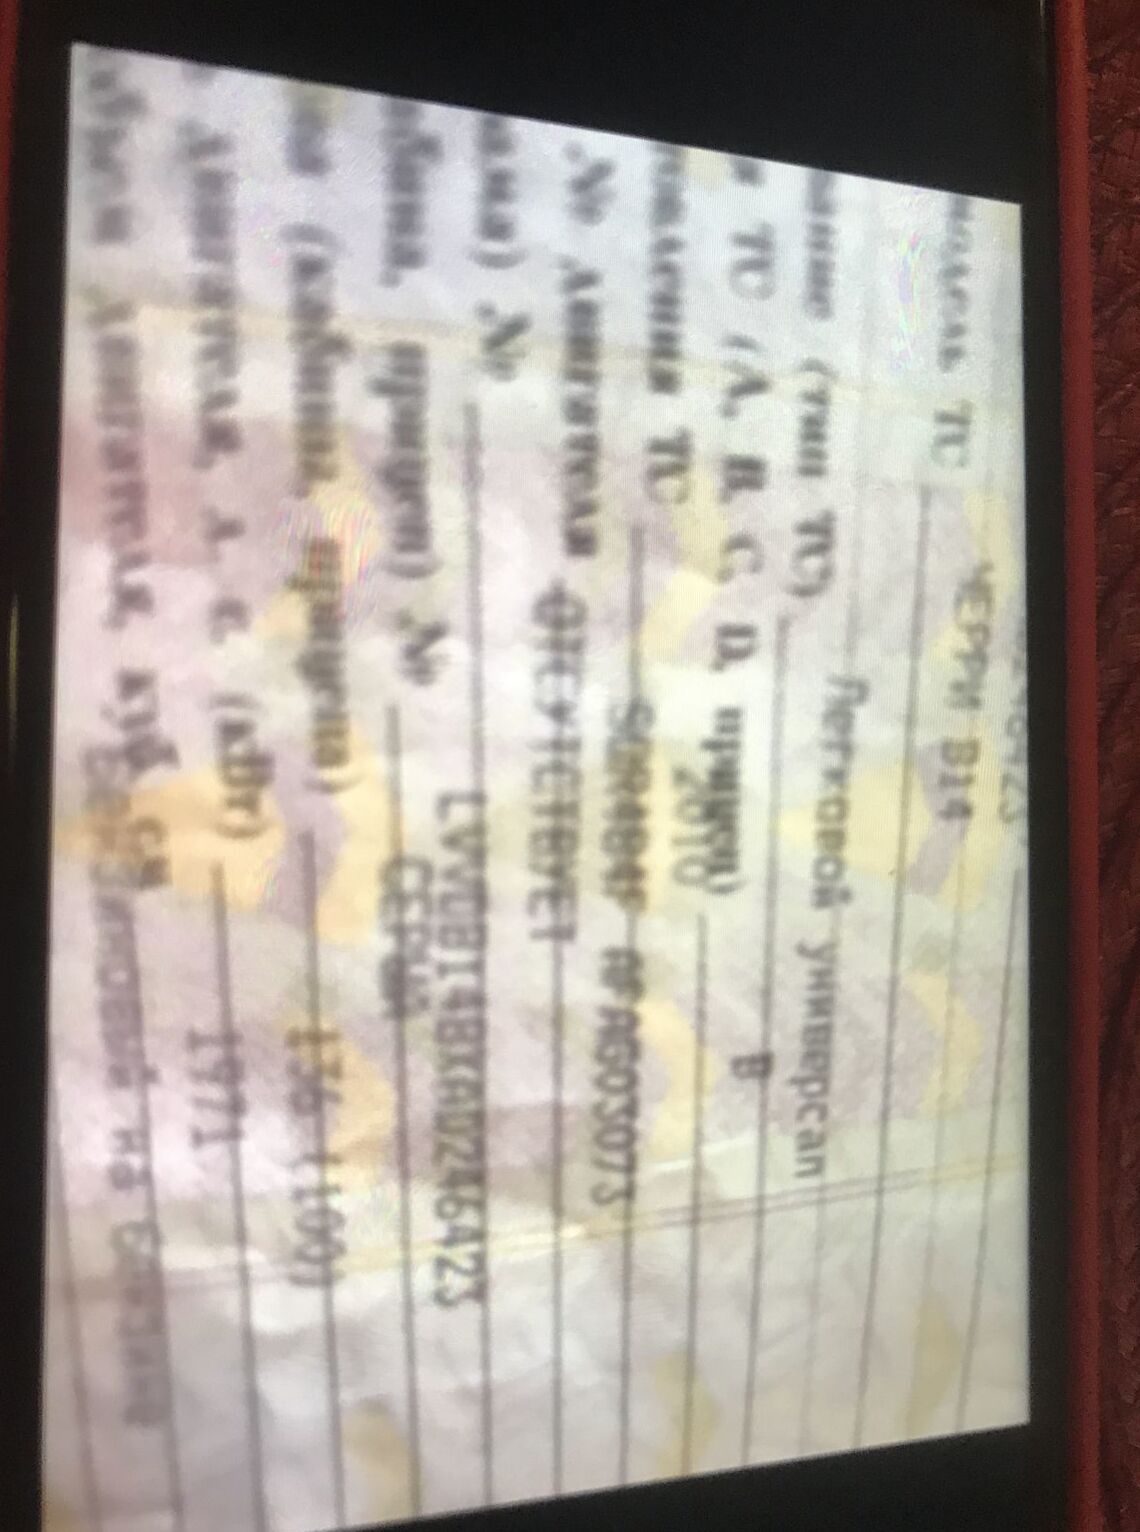 46423
одель ТС ЧЕРРИ B14
ание (тип ТС) Легковой универсал
я ТС (A, B, C, D, прицеп) B
овления ТС 2010
№ двигателя SQR484F AFAG03073
ама) № ОТСУТСТВУЕТ
абина, прицеп) № LVVDB14B1AD246423
ва (кабина, прицепа) СЕРЫЙ
двигателя, л. с. (кВт) 136 (100)
объем двигателя, куб. см 1971
на бензине